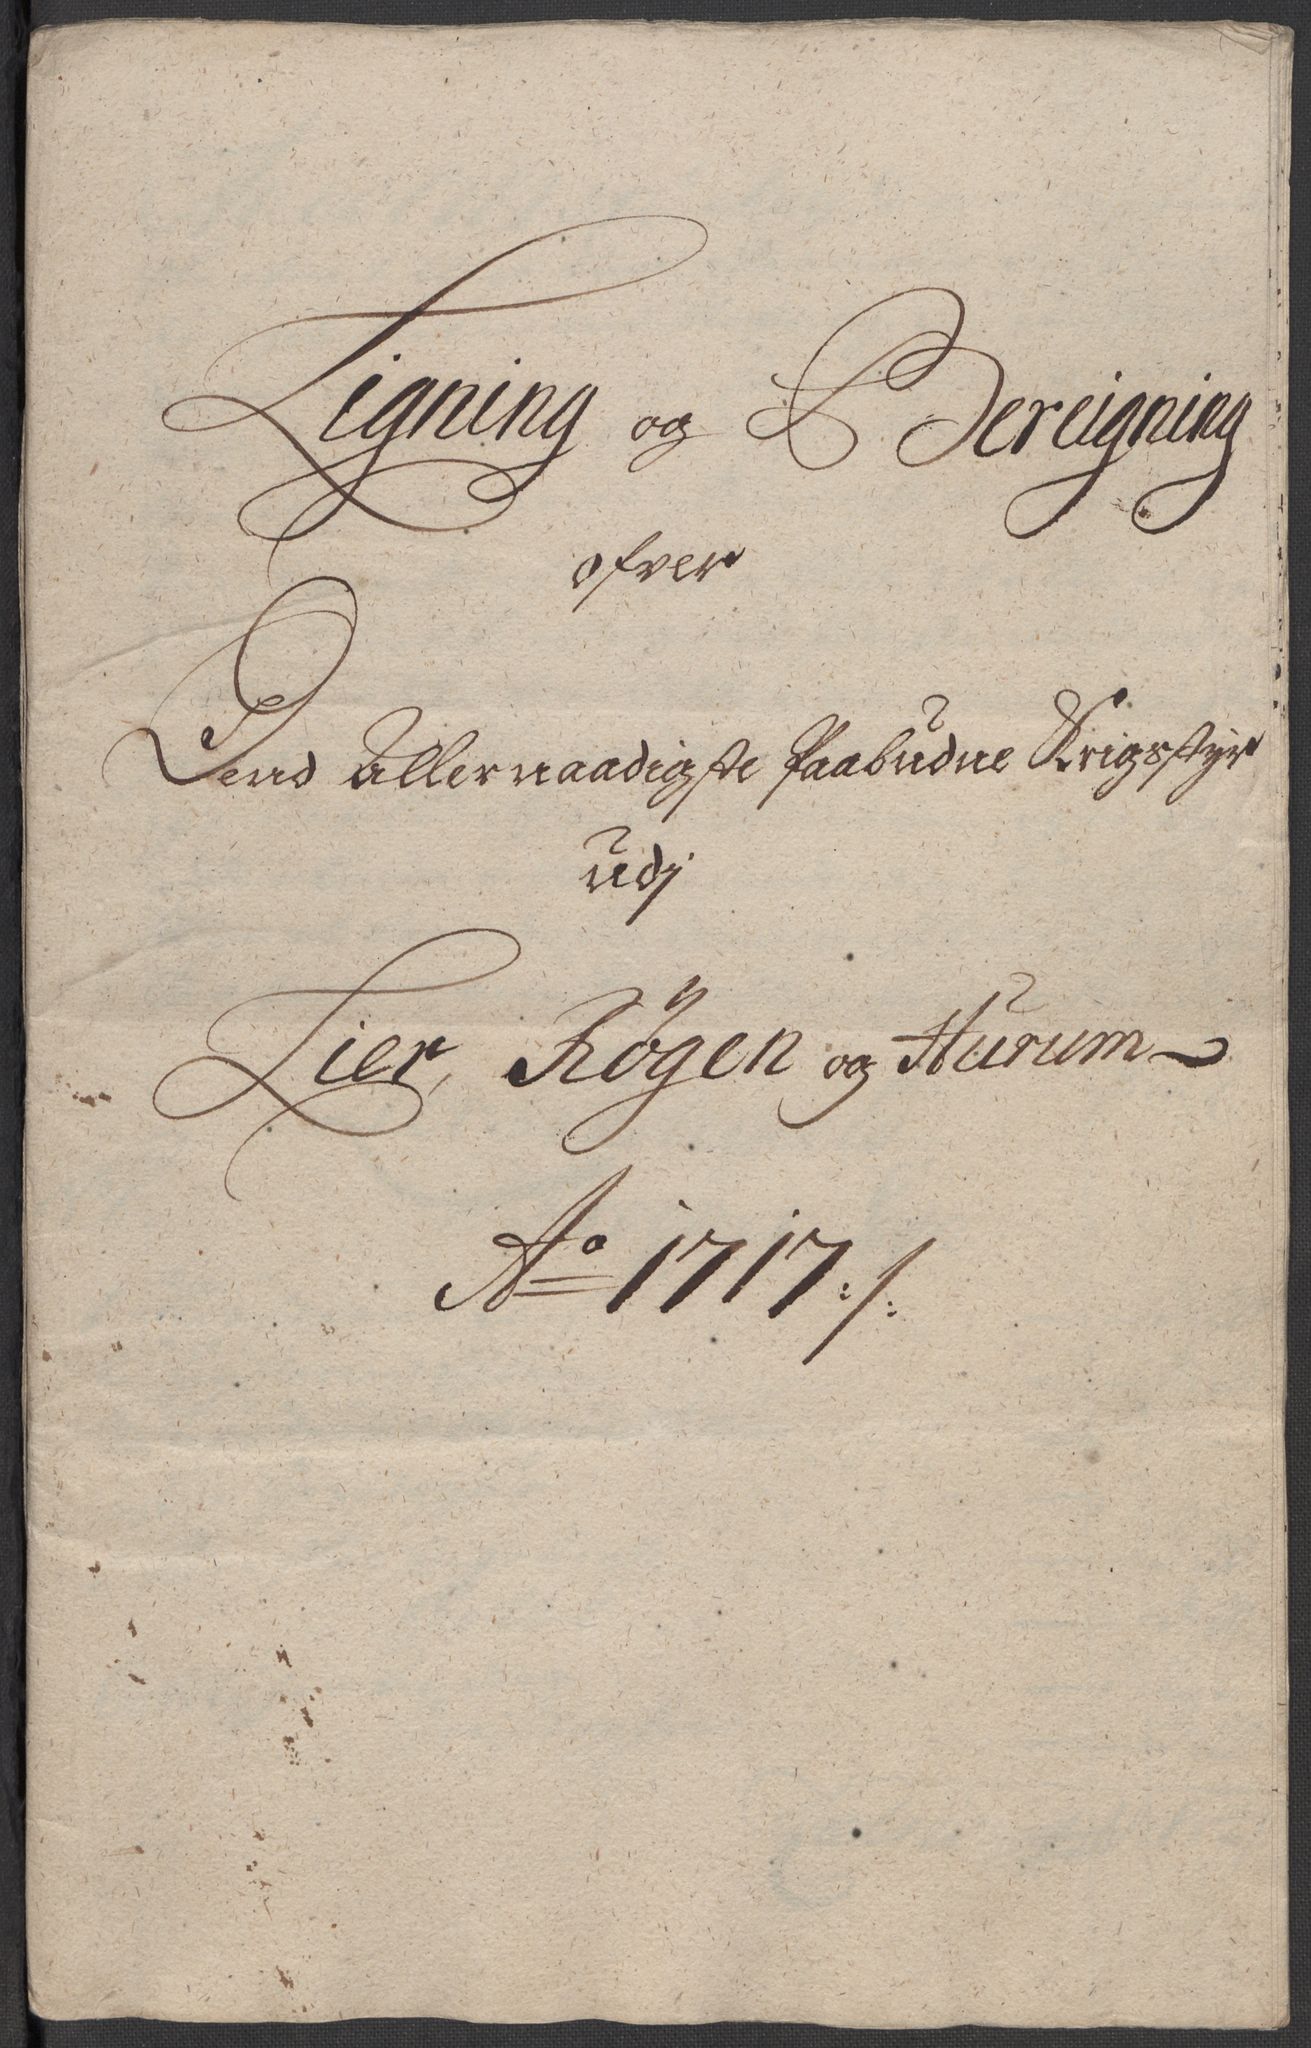 Ligning og Bereigning
ofver
Dend Allernaadigste Paabudne Krigsstyr
udj
Lier, Røgen og Hurum
Ao 1717 ./.